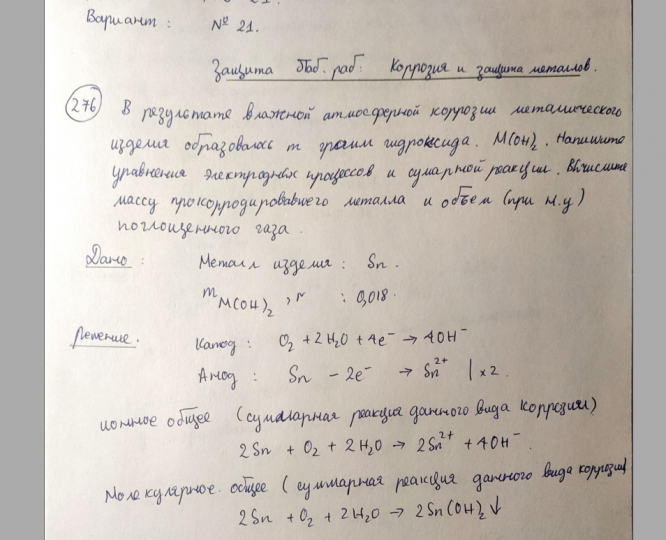 Вариант : № 21.
Защита Лаб. раб: Коррозия и защита металлов.
276 В результате влажной атмосферной коррозии металлического
изделия образовалось m грамм гидроксида. M(OH)₂. Напишите
уравнения электродных процессов и сумарной реакции. Вычислите
массу прокорродировавшего металла и объем (при н.у)
поглощенного газа.
Дано : Металл изделия : Sn.
m M(OH)₂, г : 0,018.
Решение. Катод : O₂ + 2H₂O + 4e⁻ → 4OH⁻
Анод : Sn - 2e⁻ → Sn²⁺ | x 2.
ионное общее (суммарная реакция данного вида коррозии)
2Sn + O₂ + 2H₂O → 2Sn²⁺ + 4OH⁻.
Молекулярное общее (суммарная реакция данного вида коррозии)
2Sn + O₂ + 2H₂O → 2Sn(OH)₂↓